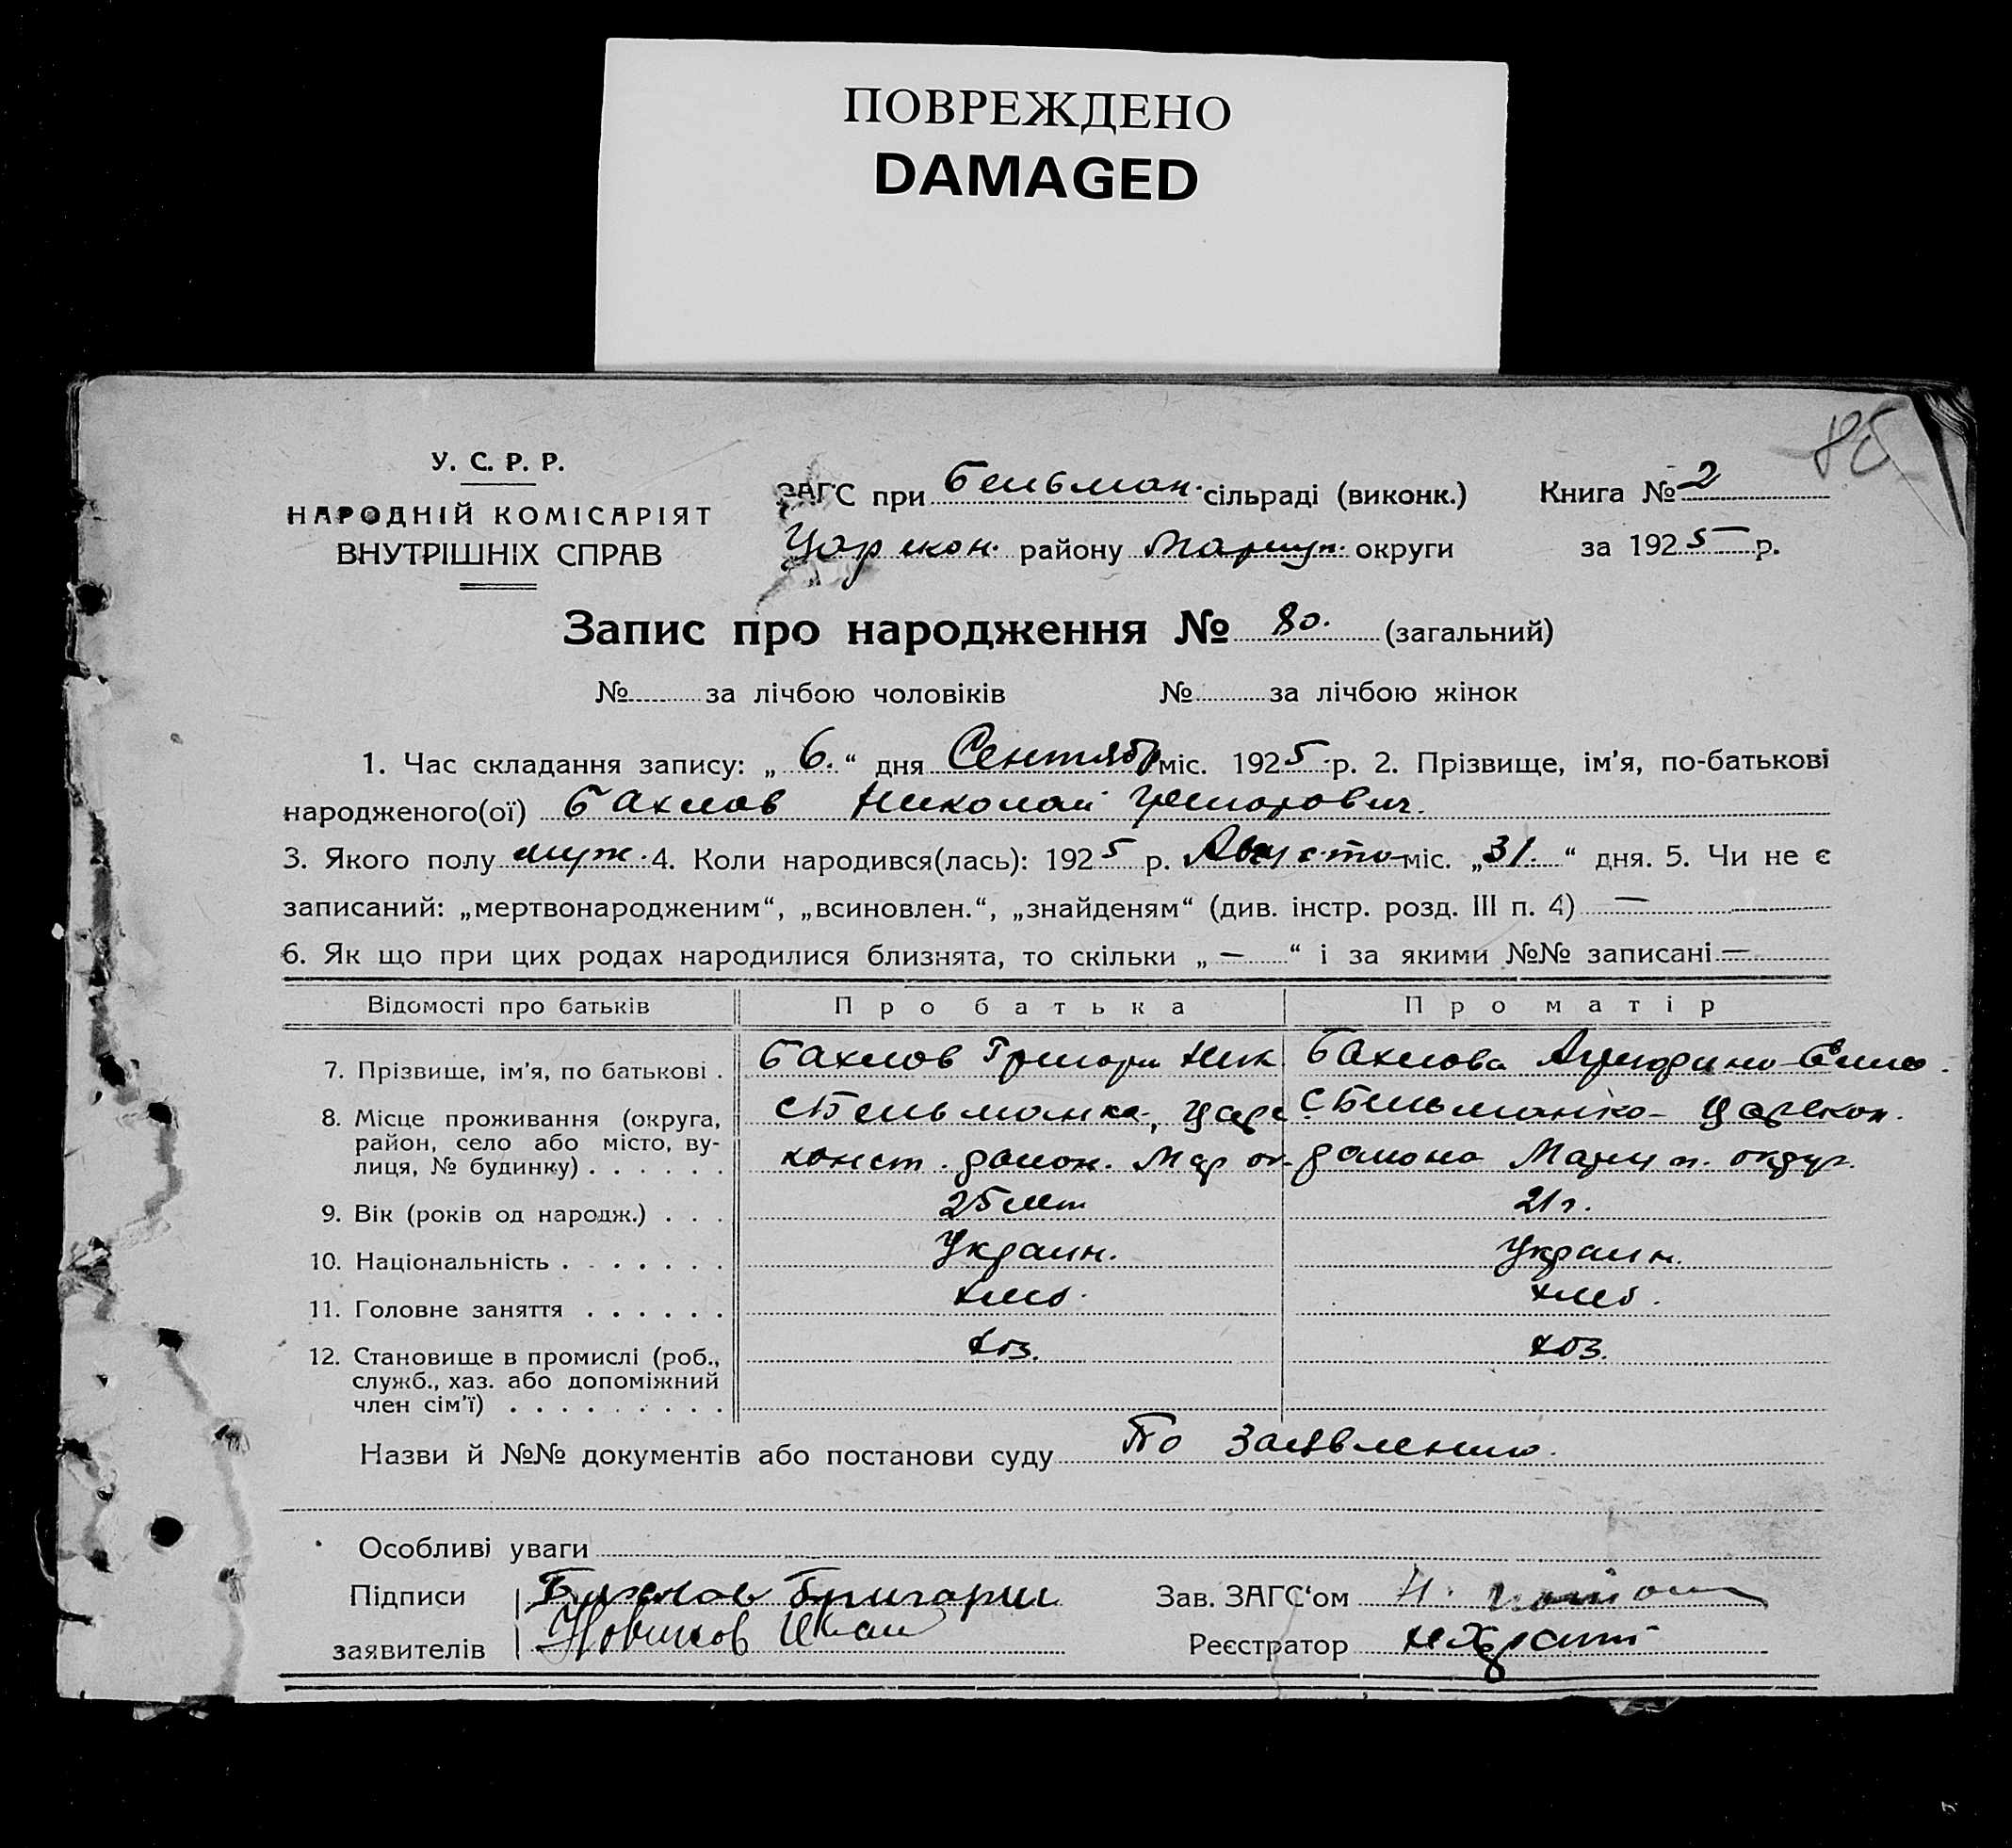 ПОВРЕЖДЕНО
DAMAGED
85
У. С. Р. Р.
НАРОДНІЙ КОМІСАРІЯТ
ВНУТРІШНІХ СПРАВ
ЗАГС при Бельман. сільраді (виконк.) Книга № 2
Царекон. району Мариуп. округи за 1925 р.
Запис про народження № 80. (загальний)
№ за лічбою чоловіків № за лічбою жінок
1. Час складання запису: „6.“ дня Сентябр міс. 1925 р. 2. Прізвище, ім’я, по-батькові
народженого(ої) Бахлов Николай Григорович.
3. Якого полу муж. 4. Коли народився(лась): 1925 р. Августа міс. „31.“ дня. 5. Чи не є
записаний: „мертвонародженим“, „всиновлен.“, „знайденям“ (див. інстр. розд. III п. 4) —
6. Як що при цих родах народилися близнята, то скільки „—“ і за якими №№ записані —
Відомості про батьків Про батька Про матір
7. Прізвище, ім’я, по батькові . Бахлов Григори Ник Бахлова
8. Місце проживання (округа, с Бельманка, Царе с. Бельманка Царекон.
район, село або місто, ву-
лиця, № будинку) . . . . . . конст. район. Мар ок. района Мариуп. округ.
9. Вік (років од народж.) . . . 25 лет 21 г.
10. Національність . . . . . . . Украин. Украин.
11. Головне заняття . . . . . . хлеб. хлеб.
12. Становище в промислі (роб., хоз. хоз.
служб., хаз. або допоміжний
член сім’ї) . . . . . . . . .
Назви й №№ документів або постанови суду По заявлению.
Особливі уваги
Підписи Бахлов Григори Зав. ЗАГС‘ом Н.
заявителів Новиков Иван Реєстратор